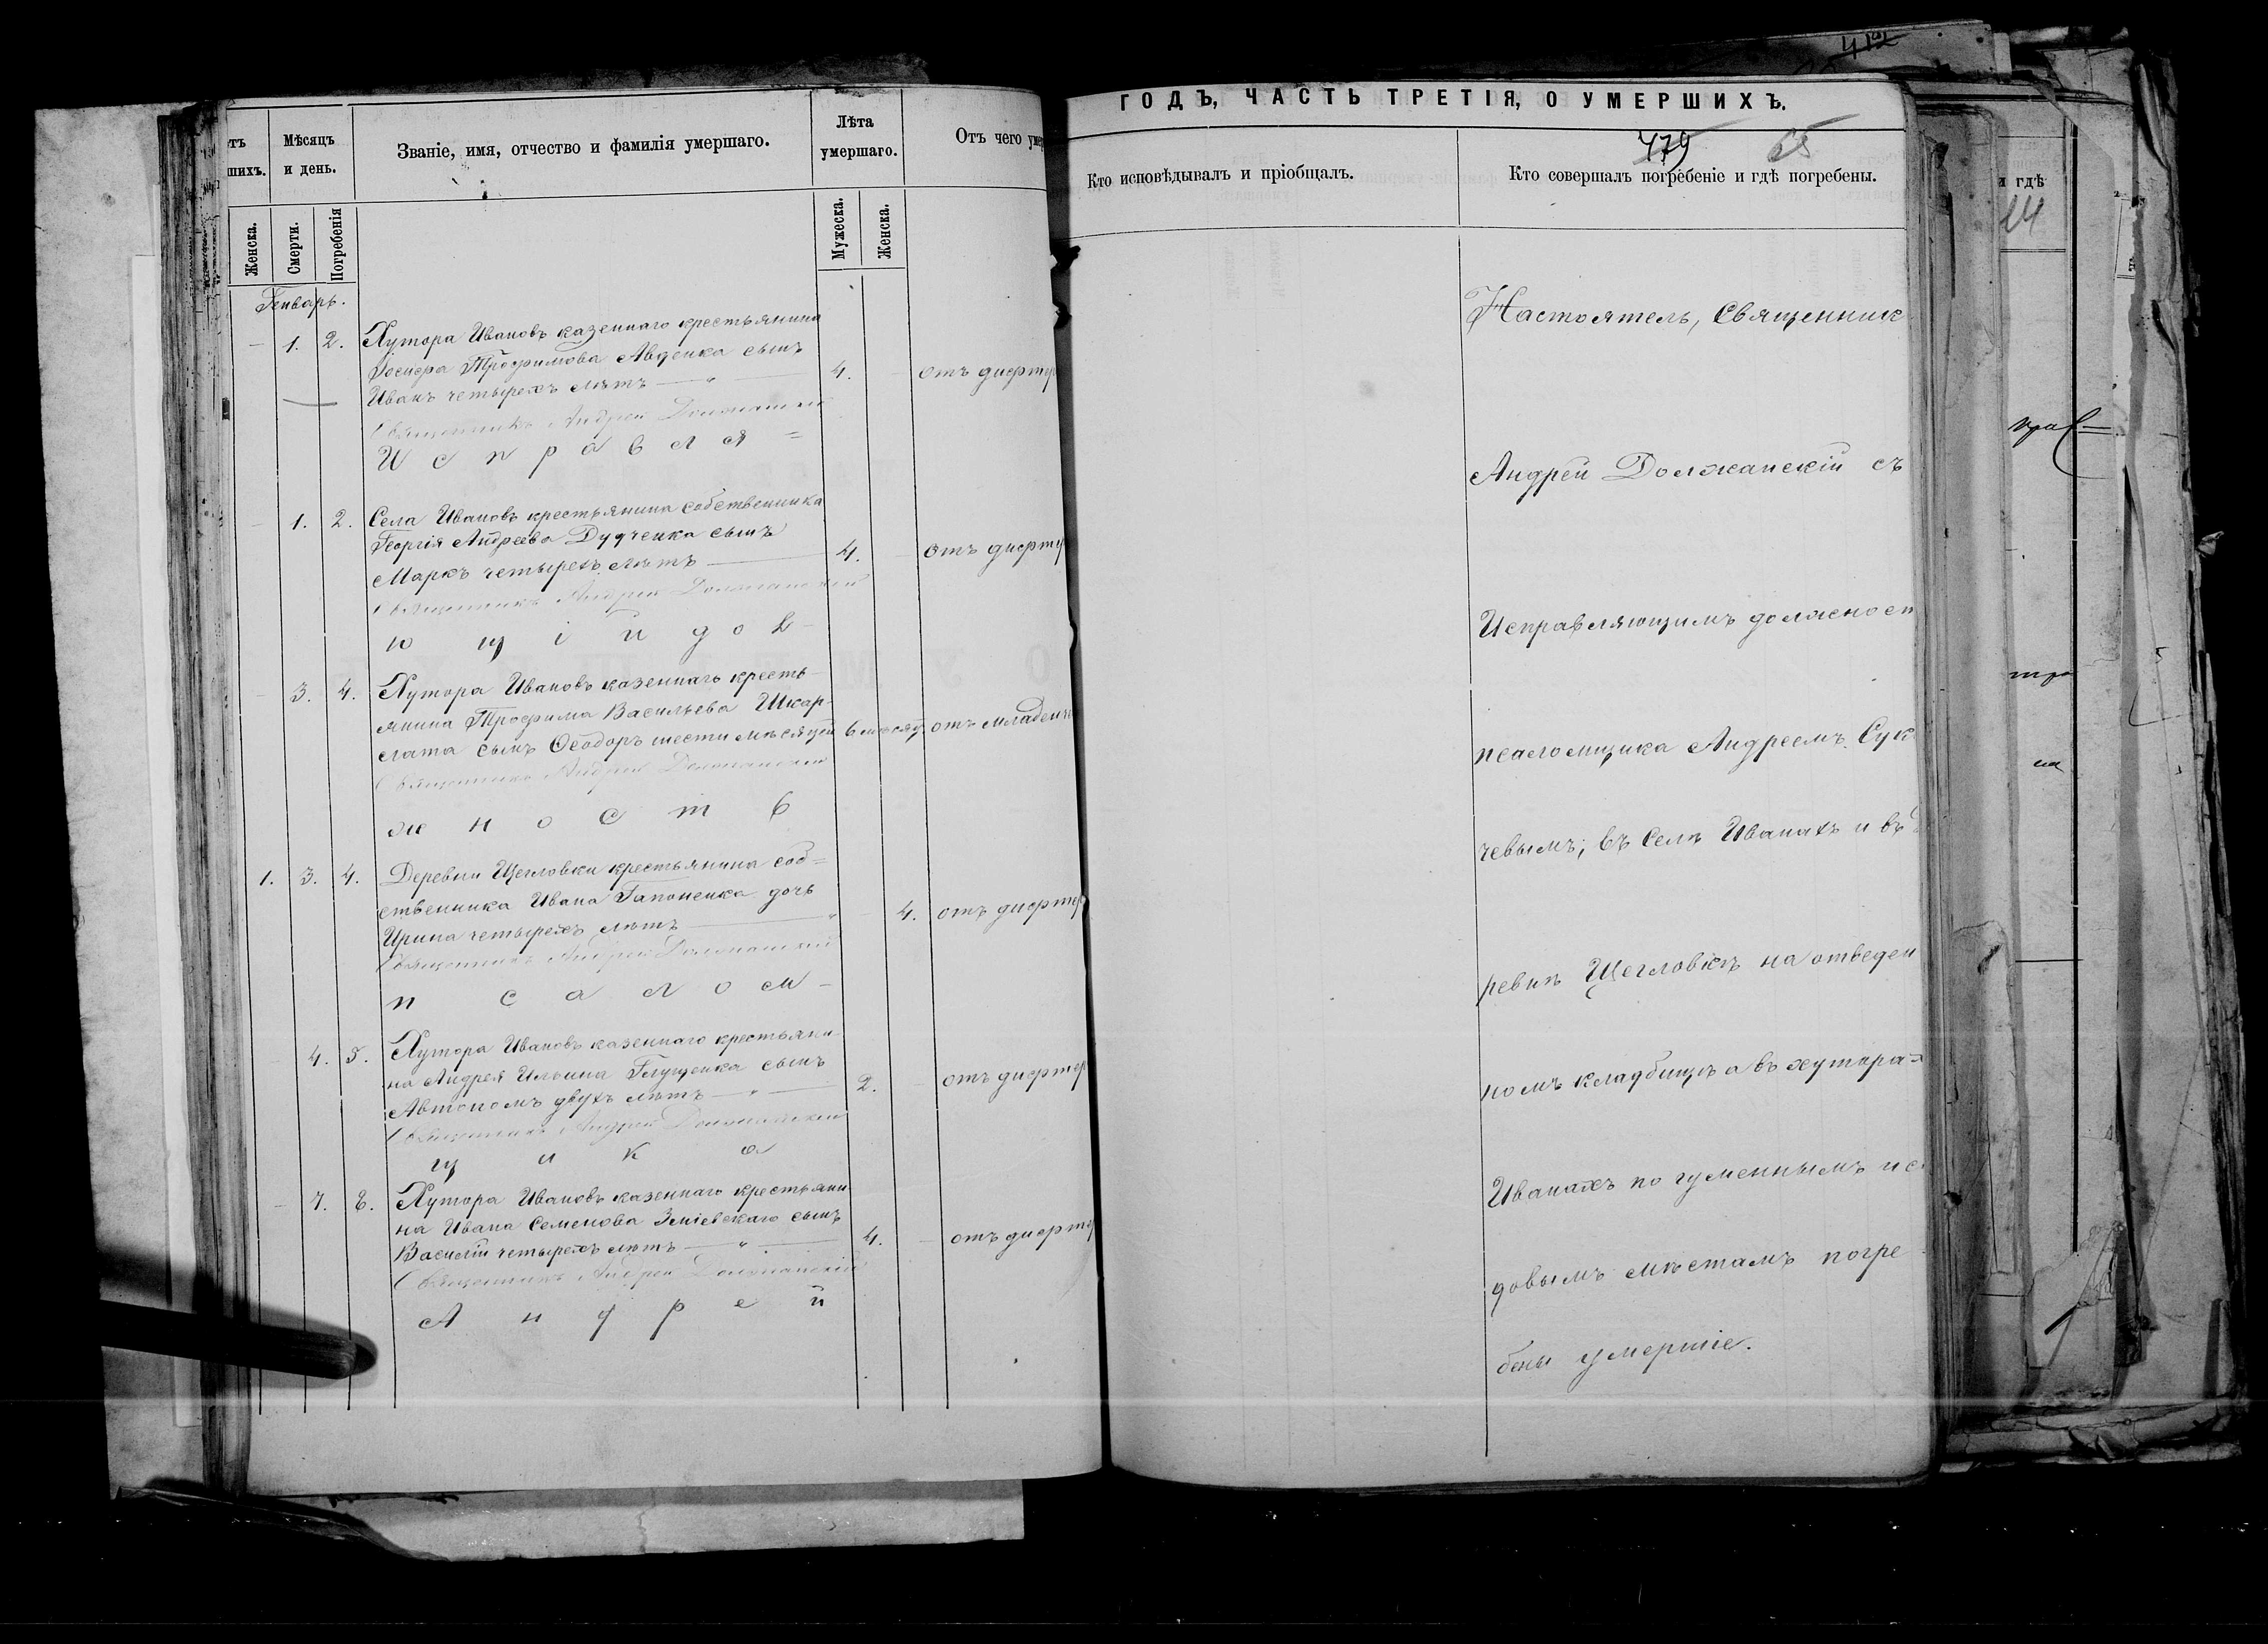 ГОДЪ, ЧАСТЬ ТРЕТІЯ, О УМЕРШИХЪ.
Мѣсяцъ и день.
Званіе, имя, отчество и фамилія умершаго.
Лѣта умершаго.
Отъ чего
Женска.
Смерти.
Погребенія
Мужеска.
Женска.
Генварь.
1. 2. Хутора Ивановъ казеннаго крестьянина
Трофимова Авденка сынъ
Иванъ четырехъ лѣтъ — 4. отъ дифте
Священникъ Андрей Должанскій
Исправля=
1. 2. Села Ивановъ крестьянина собственника
Георгія Андреева Дудченка сынъ
Маркъ четырехъ лѣтъ — 4. отъ дифте
Священникъ Андрей Должанскій
ющій дол-
3. 4. Хутора Ивановъ казеннаго кресть-
янина Трофима Васильева Шкар-
лата сынъ Ѳеодоръ шести мѣсяцей 6 мѣсяц. отъ младен
Священникъ Андрей Должанскій
жность
1. 3. 4. Деревни Щегловки крестьянина соб=
ственника Ивана Гапоненка дочь
Ирина четырехъ лѣтъ — 4. отъ дифте
Священникъ Андрей Должанскій
псалом-
4. 5. Хутора Ивановъ казеннаго крестьяни-
на Андрея Ильина Глущенка сынъ
Автономъ двухъ лѣтъ — 2. отъ дифтер
Священникъ Андрей Должанскій
щика
7. 8. Хутора Ивановъ казеннаго крестьяни-
на Ивана Семенова Зміевскаго сынъ
Василій четырехъ лѣтъ — 4. отъ дифте
Священникъ Андрей Должанскій
Андрей
479 65
Кто исповѣдывалъ и пріобщалъ.
Кто совершалъ погребеніе и гдѣ погребены.
Настоятель, Священник
Андрей Должанскій съ
Исправляющимъ должност
псаломщика Андреемъ Сук
чевымъ; въ Селѣ Иванахъ и въ
ревнѣ Щегловкѣ на отведен
номъ кладбищѣ а въ хутора=
Иванахъ по гуменнымъ и с
довымъ мѣстамъ погре-
бены умершіе.
и гдѣ